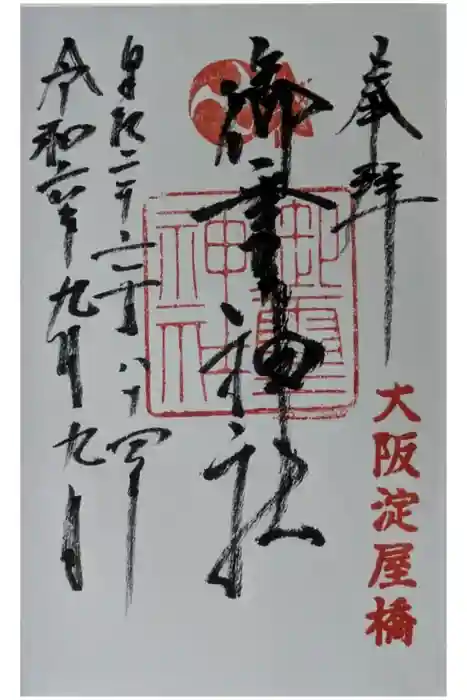 奉拝
大阪淀屋橋
御霊神社
御靈神社
皇紀二千六百八十四年
令和六年九月九日